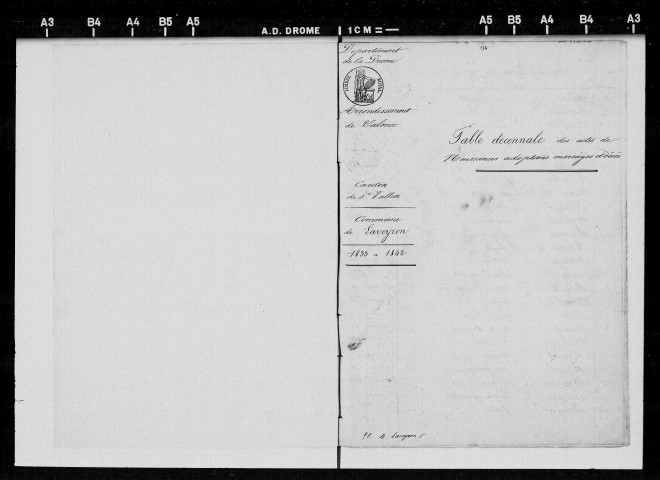 A3 B4 A4 B5 A5 A.D. DROME 1 CM A5 B5 A4 B4 A3
Département
de la Drome
Arrondissement
de Valence
Canton
de St Vallier
Commune
de Laveyron
1833 a 1842
Table decennale des actes de
Naissances adoptions mariages décès
Laveyron